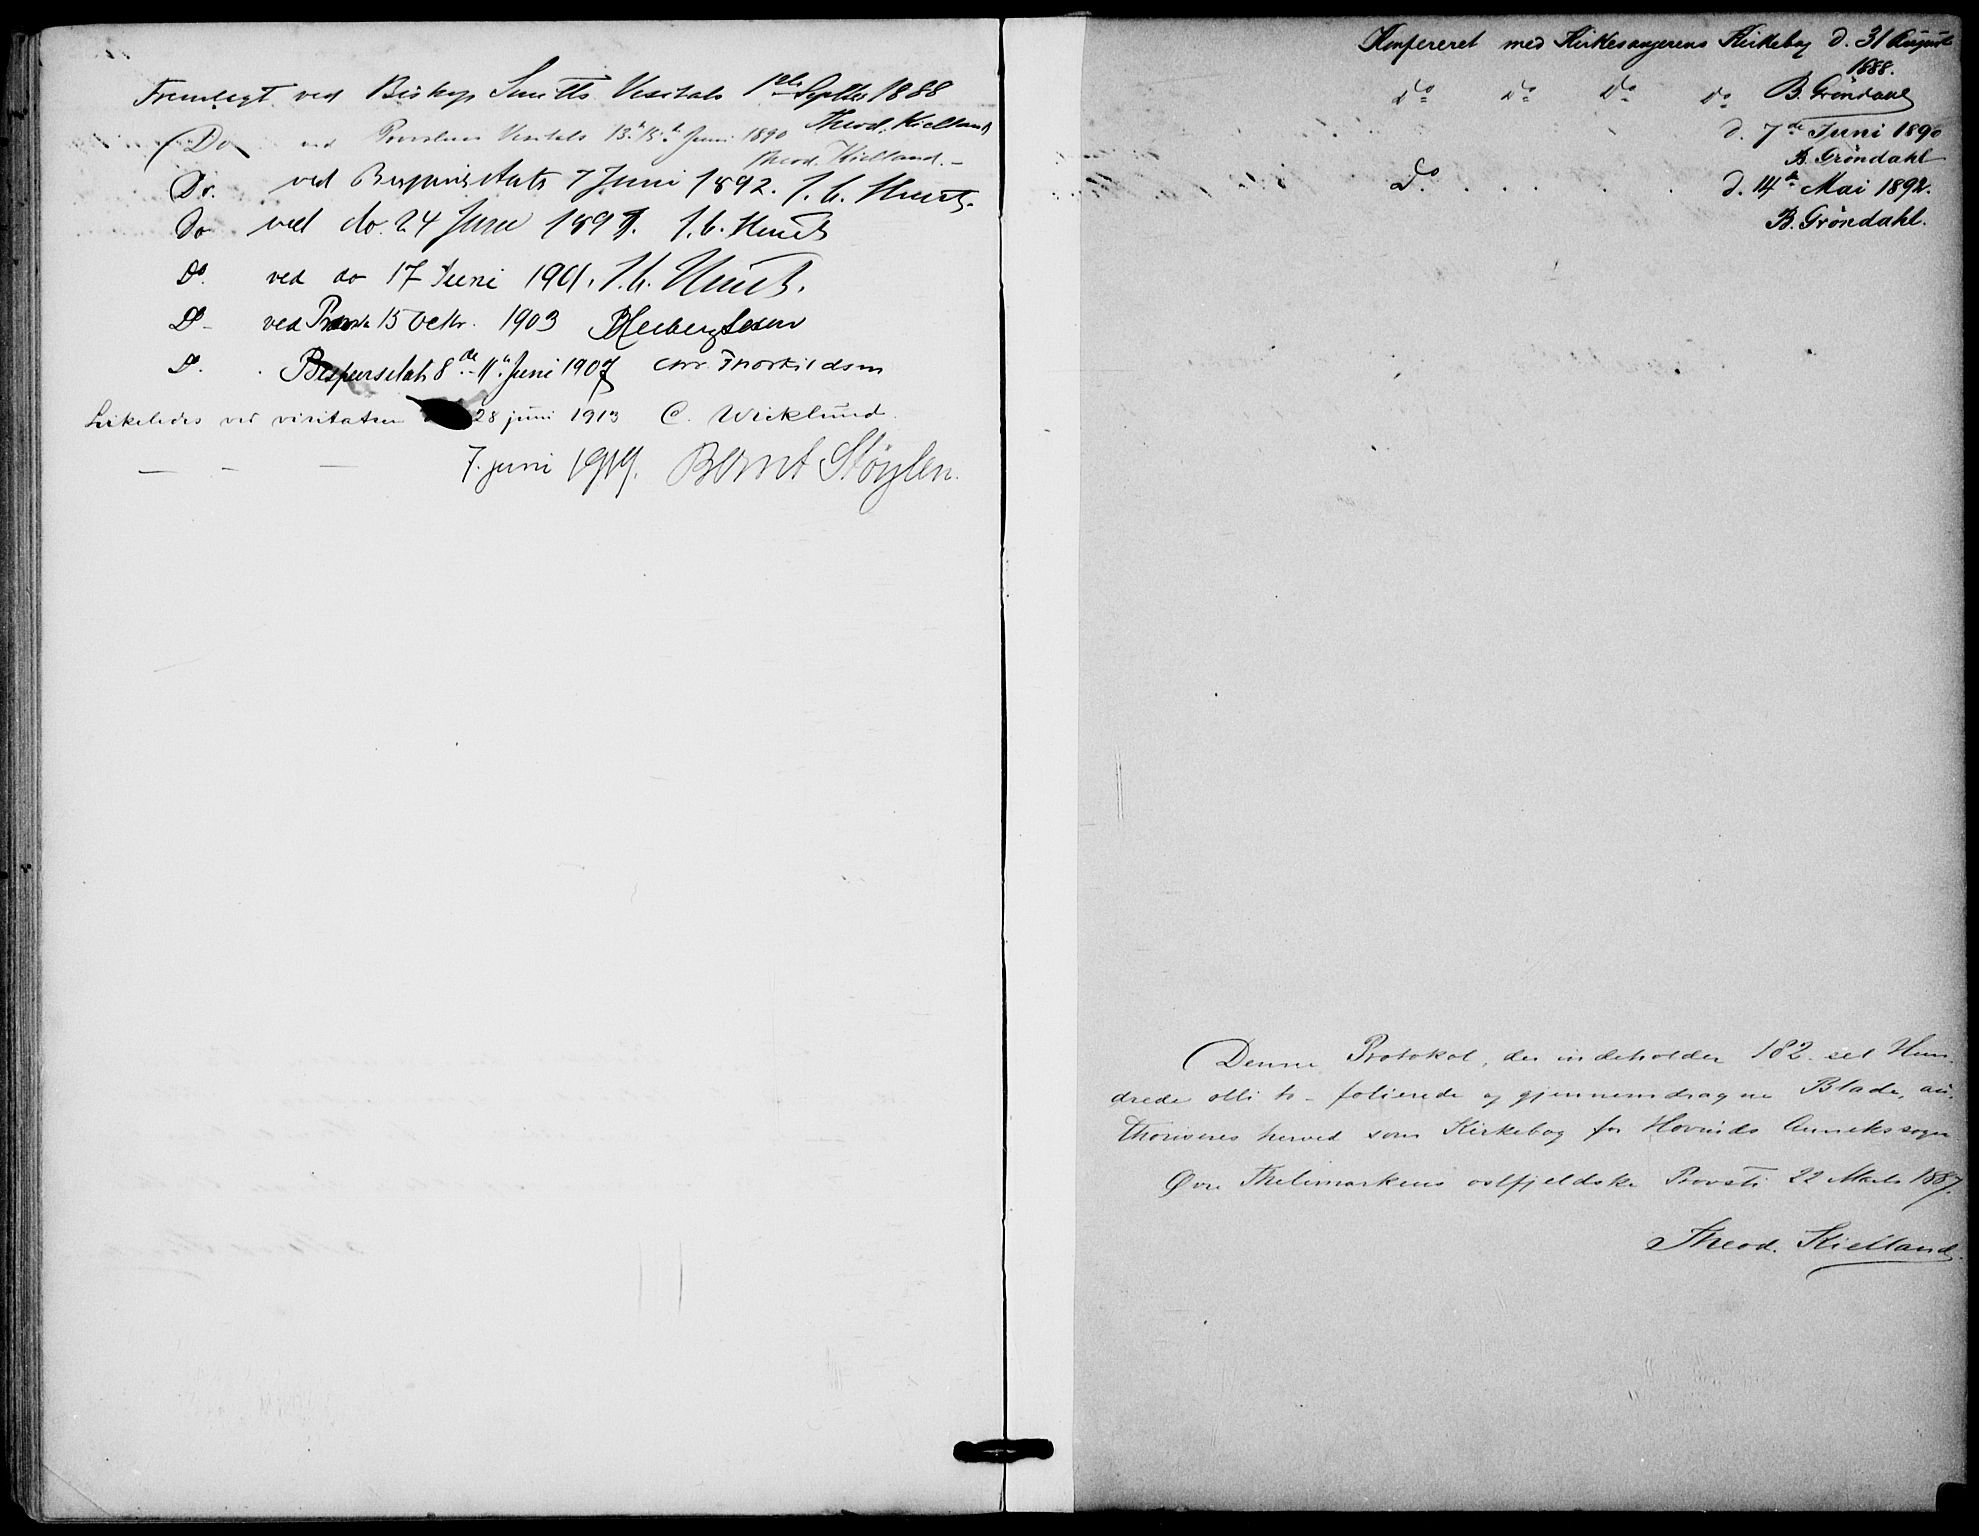 Fremlegt ved Biskop Smitts Visitats 1ste Septber 1888
Theod. Kielland
Do ved Provstens Visitats 13de 15de Juni 1890
Theod. Kielland.
Do. ved Bispevisitats 7 Juni 1892. J. C. Heuch.
Do ved do. 24 Juni 1897. J. C. Heuch
Do. ved do 17 Juni 1901. J. C. Heuch.
Do ved 15 Octbr. 1903
Do. 8de - 11te Juni 1907 Chr. Thorkildsen
Likeledes ved visitatsen 28 juni 1913 C. Wicklund.
— — — 7. juni 1919. Bernt Støylen.
Konfereret med Kirkesangerens Kirkebog d. 31 August
1888.
Do Do Do Do B. Grøndahl
d. 7de Juni 1890
B. Grøndahl
Do . . . . . d. 14de Mai 1892.
B. Grøndahl.
Denne Protokol, der indeholder 182 - et Hun-
drede otti to - folierede og gjennemdragne Blade, au-
thoriseres herved som Kirkebog for Hovinds Annekssogn
Øvre Thelemarkens østfjeldske Provsti 22 Marts 1887.
Theod. Kielland.